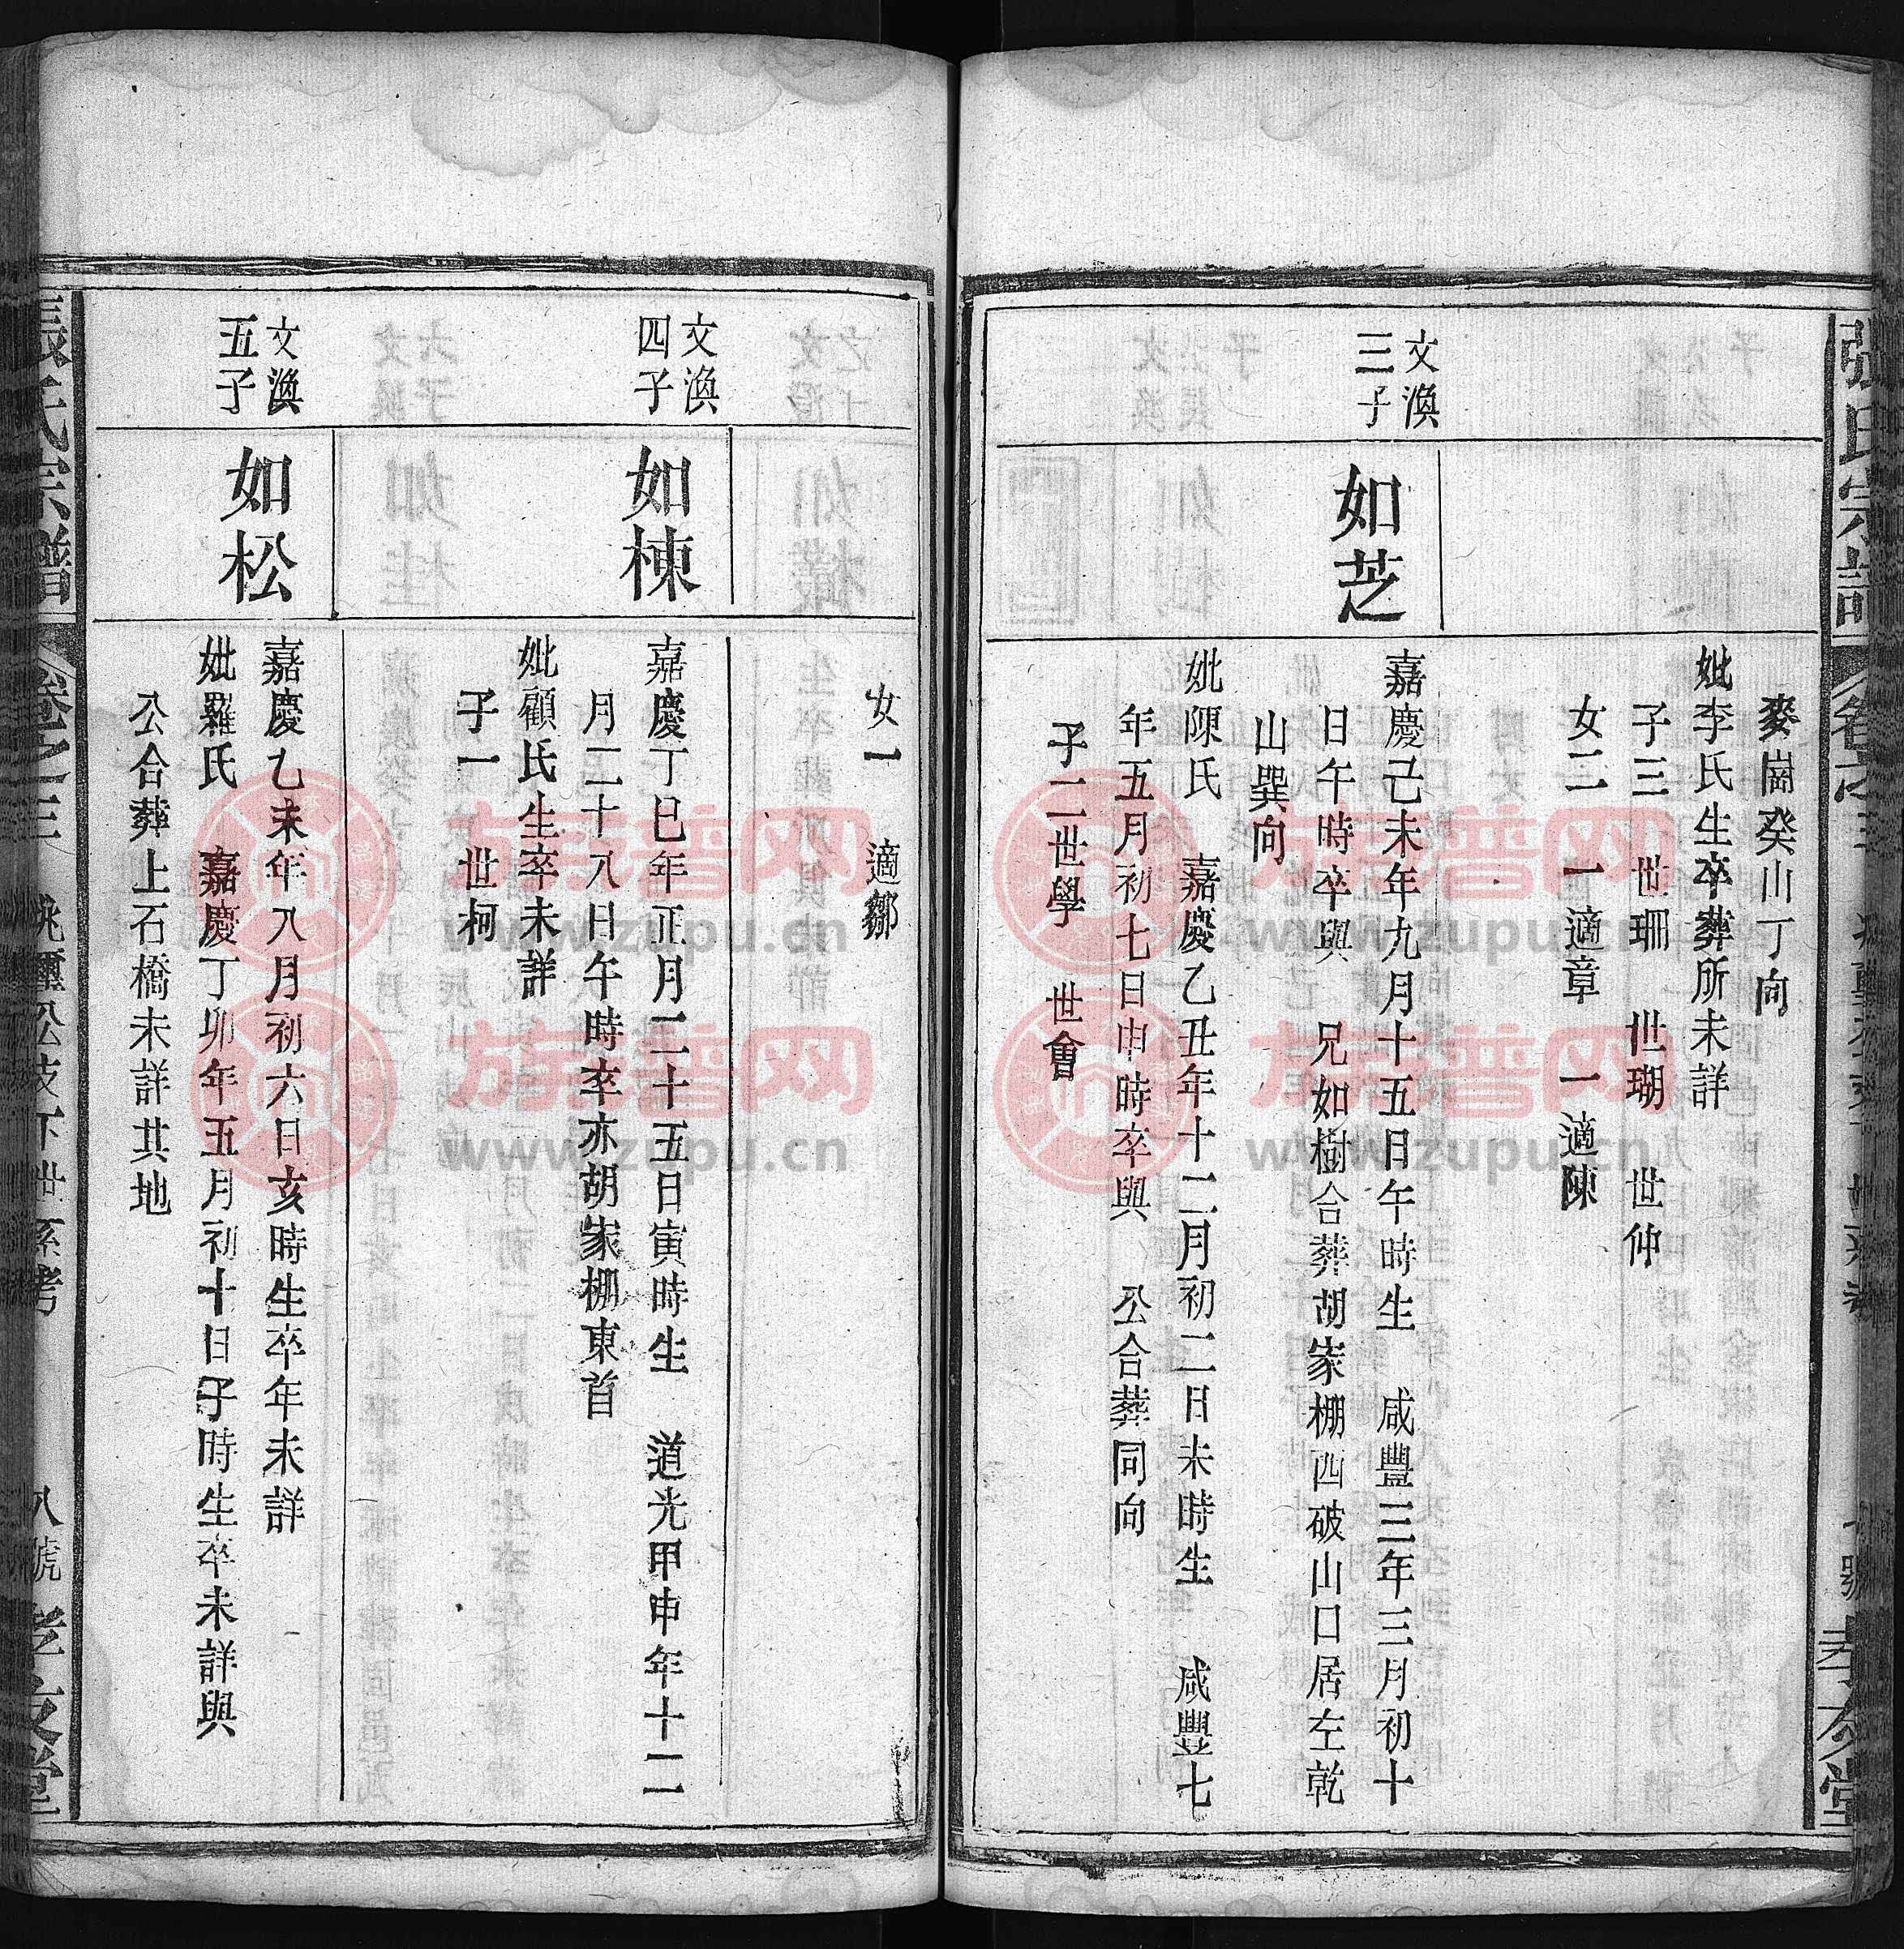 張氏宗譜
孝友堂
麥崗癸山丁向
妣李氏生卒葬所未詳
子三 世珊 世瑚 世仲
女二 一適章 一適陳
文渙
三子
如芝
嘉慶己未年九月十五日午時生 咸豐三年三月初十
日午時卒與 兄如樹合葬胡家棚西破山口居左乾
山巽向
妣陳氏 嘉慶乙丑年十二月初二日未時生 咸豐七
年五月初七日申時卒與 公合葬同向
子二世學 世會
女一 適鄒
文渙
四子
如棟
嘉慶丁巳年正月二十五日寅時生 道光甲申年十二
月二十八日午時卒亦胡家棚東首
妣顧氏生卒未詳
子一 世柯
文渙
五子
如松
嘉慶乙未年八月初六日亥時生卒年未詳
妣羅氏 嘉慶丁卯年五月初十日子時生卒未詳與
公合葬上石橋未詳其地
張氏宗譜
卷之三
八號
孝友堂
族譜网
www.zupu.cn
族譜网
www.zupu.cn
族譜网
www.zupu.cn
族譜网
www.zupu.cn